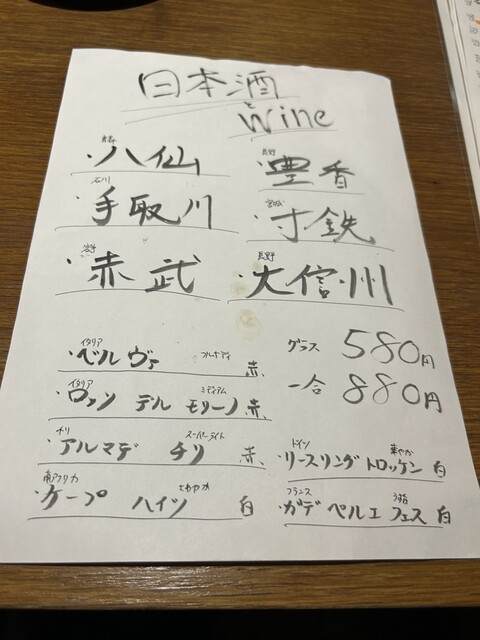 日本酒
と
Wine
青森
・八仙
長野
・豊香
石川
・手取川
宮城
・寸鉄
岩手
・赤武
長野
・大信州
グラス 580円
一合 880円
イタリア フルボディ
・ベルヴァ 赤
イタリア ミディアム
・ロッソ デル モリーノ 赤
チリ スーパーライト
・アルマデ チリ 赤
南アフリカ さわやか
・ケープ ハイツ 白
ドイツ 華やか
・リースリング トロッケン 白
フランス
・ガデ ペルエ フェス 白